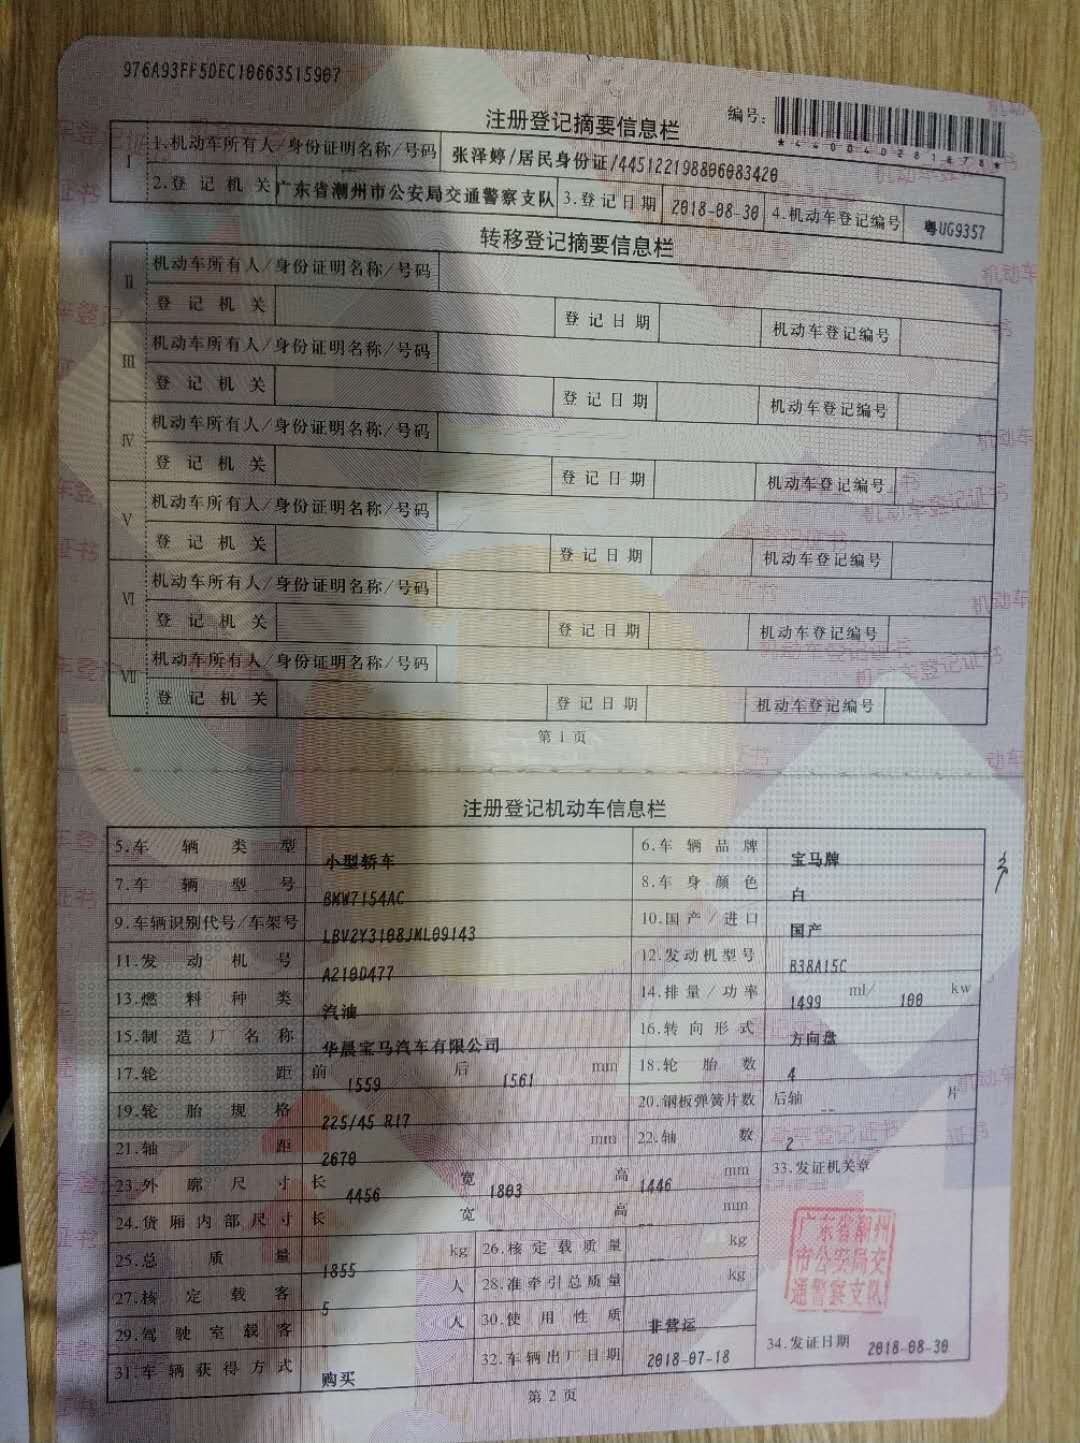 976A93FF5DEC10663515907
注册登记摘要信息栏
编号:
*440040281878*
I
1.机动车所有人/身份证明名称/号码 张泽婷/居民身份证/445122198806083420
2.登记机关 广东省潮州市公安局交通警察支队 3.登记日期 2018-08-30 4.机动车登记编号 粤UG9357
转移登记摘要信息栏
II 机动车所有人/身份证明名称/号码
登记机关 登记日期 机动车登记编号
III 机动车所有人/身份证明名称/号码
登记机关 登记日期 机动车登记编号
IV 机动车所有人/身份证明名称/号码
登记机关 登记日期 机动车登记编号
V 机动车所有人/身份证明名称/号码
登记机关 登记日期 机动车登记编号
VI 机动车所有人/身份证明名称/号码
登记机关 登记日期 机动车登记编号
VII 机动车所有人/身份证明名称/号码
登记机关 登记日期 机动车登记编号
第 1 页
注册登记机动车信息栏
5.车辆类型 小型轿车 6.车辆品牌 宝马牌
7.车辆型号 BMW7154AC 8.车身颜色 白
9.车辆识别代号/车架号 LBV2Y3108JML09143 10.国产/进口 国产
11.发动机号 A210D477 12.发动机型号 B38A15C
13.燃料种类 汽油 14.排量/功率 1499 ml/ 100 kw
15.制造厂名称 华晨宝马汽车有限公司 16.转向形式 方向盘
17.轮距 前 1559 后 1561 mm 18.轮胎数 4
19.轮胎规格 225/45 R17 20.钢板弹簧片数 后轴 -- 片
21.轴距 2670 mm 22.轴数 2
23.外廓尺寸 长 4456 宽 1803 高 1446 mm 33.发证机关章
24.货厢内部尺寸 长 宽 -- 高 -- mm
25.总质量 1855 kg 26.核定载质量 -- kg
27.核定载客 5 人 28.准牵引总质量 kg
29.驾驶室载客 人 30.使用性质 非营运
31.车辆获得方式 购买 32.车辆出厂日期 2018-07-18
广东省潮州
市公安局交
通警察支队
34.发证日期 2018-08-30
第 2 页